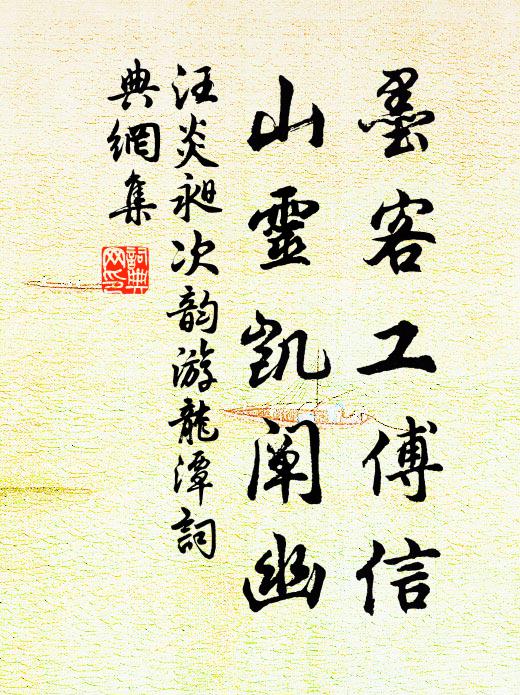 墨客工傅信
山靈凯闡幽
汪炎昶次韵游龍潭詞
典網集
詞典网印